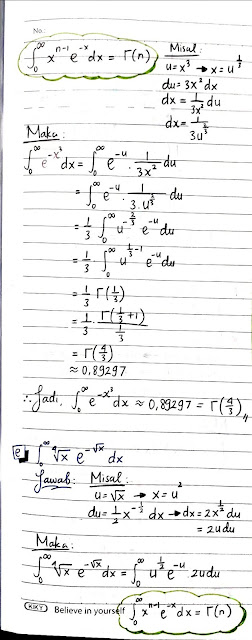 No.:
∫₀^∞ x^(n-1) e^(-x) dx = Γ(n)
Misal:
u = x³ → x = u^(1/3)
du = 3x² dx
dx = 1/(3x²) du
dx = 1/(3u^(2/3))
Maka:
∫₀^∞ e^(-x³) dx = ∫₀^∞ e^(-u) · 1/(3x²) du
= ∫₀^∞ e^(-u) · 1/(3·u^(2/3)) du
= 1/3 ∫₀^∞ u^(-2/3) e^(-u) du
= 1/3 · ∫₀^∞ u^(1/3 - 1) e^(-u) du
= 1/3 Γ(1/3)
= 1/3 · Γ(1/3 + 1)/(1/3)
= Γ(4/3)
≈ 0,89297
∴ Jadi, ∫₀^∞ e^(-x³) dx ≈ 0,89297 = Γ(4/3)//
e ∫₀^∞ ⁴√x e^(-√x) dx
Jawab: Misal:
u = √x → x = u²
du = 1/2 x^(-1/2) dx → dx = 2x^(1/2) du
= 2u du
Maka:
∫₀^∞ ⁴√x e^(-√x) dx = ∫₀^∞ u^(1/2) e^(-u) 2u du
KIKY Believe in yourself ∫₀^∞ x^(n-1) e^(-x) dx = Γ(n)